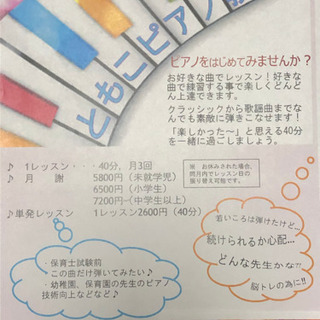 ともこピアノ
ピアノをはじめてみませんか?
お好きな曲でレッスン!好きな
曲で練習する事で楽しくどんど
ん上達できます。
クラッシックから歌謡曲までな
んでも素敵に弾きこなせます!
「楽しかった〜」と思える40分
を一緒に過ごしましょう。
♪ 1レッスン・・・40分、月3回
♪ 月 謝 5800円(未就学児)
6500円(小学生)
7200円(中学生以上)
♪単発レッスン 1レッスン2600円(40分)
※ お休みされた場合、
同月内でレッスン日の
振り替え可能です。
・保育士試験前
・この曲だけ弾いてみたい♪
・幼稚園、保育園の先生のピアノ
技術向上などなど♪
若いころは弾けたけど…
続けられるか心配…
どんな先生かな?
脳トレの為に!